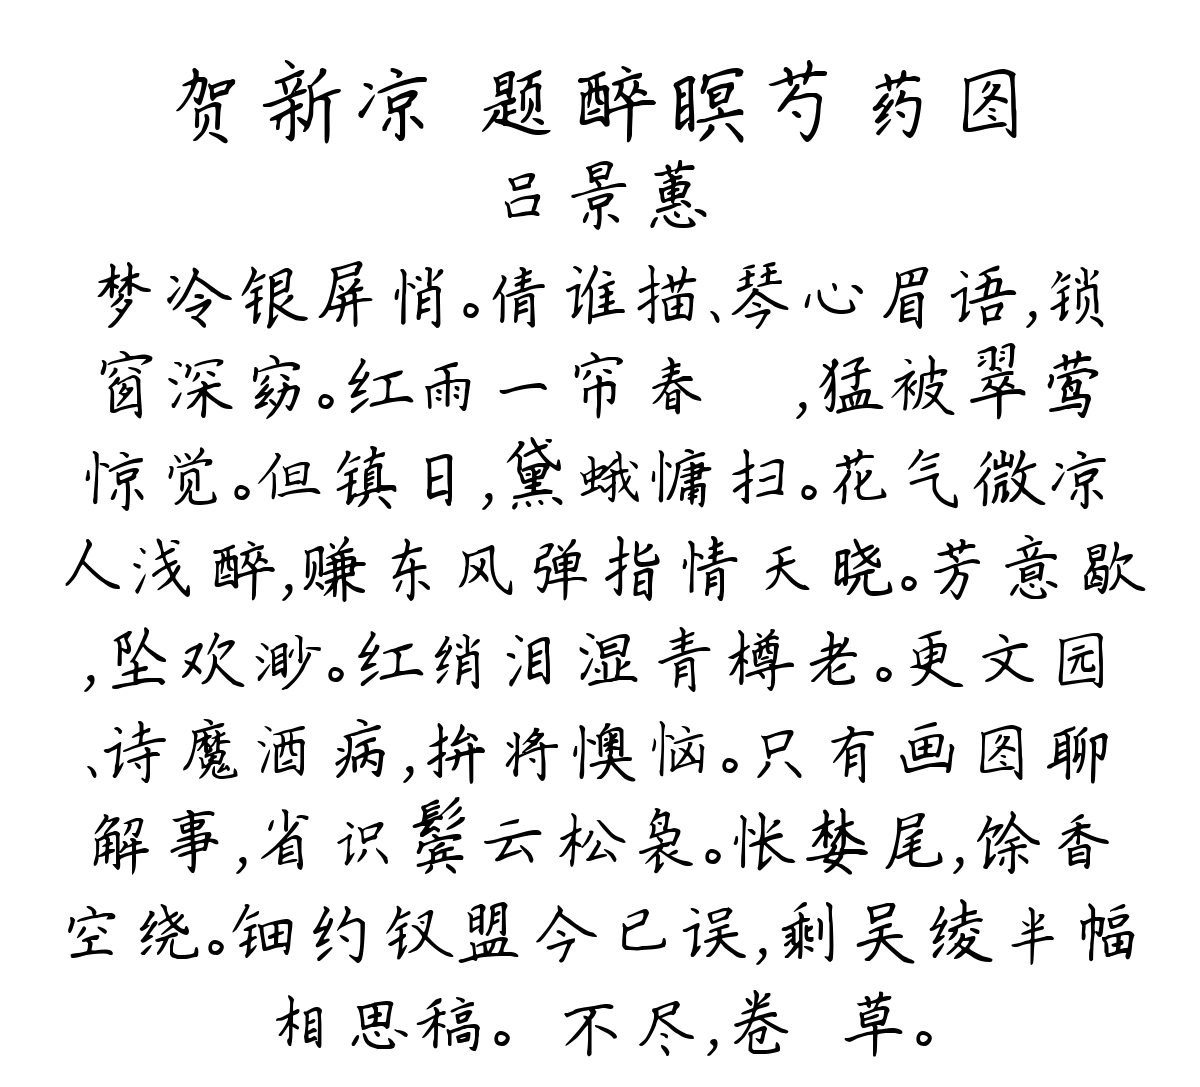 贺新凉 题醉瞑芍药图
吕景蕙
梦冷银屏悄。倩谁描、琴心眉语,锁
窗深窈。红雨一帘春 ,猛被翠莺
惊觉。但镇日,黛蛾慵扫。花气微凉
人浅醉,赚东风弹指情天晓。芳意歇
,坠欢渺。红绡泪湿青樽老。更文园
、诗魔酒病,拚将懊恼。只有画图聊
解事,省识鬓云松袅。怅婪尾,馀香
空绕。钿约钗盟今已误,剩吴绫半幅
相思稿。 不尽,卷 草。